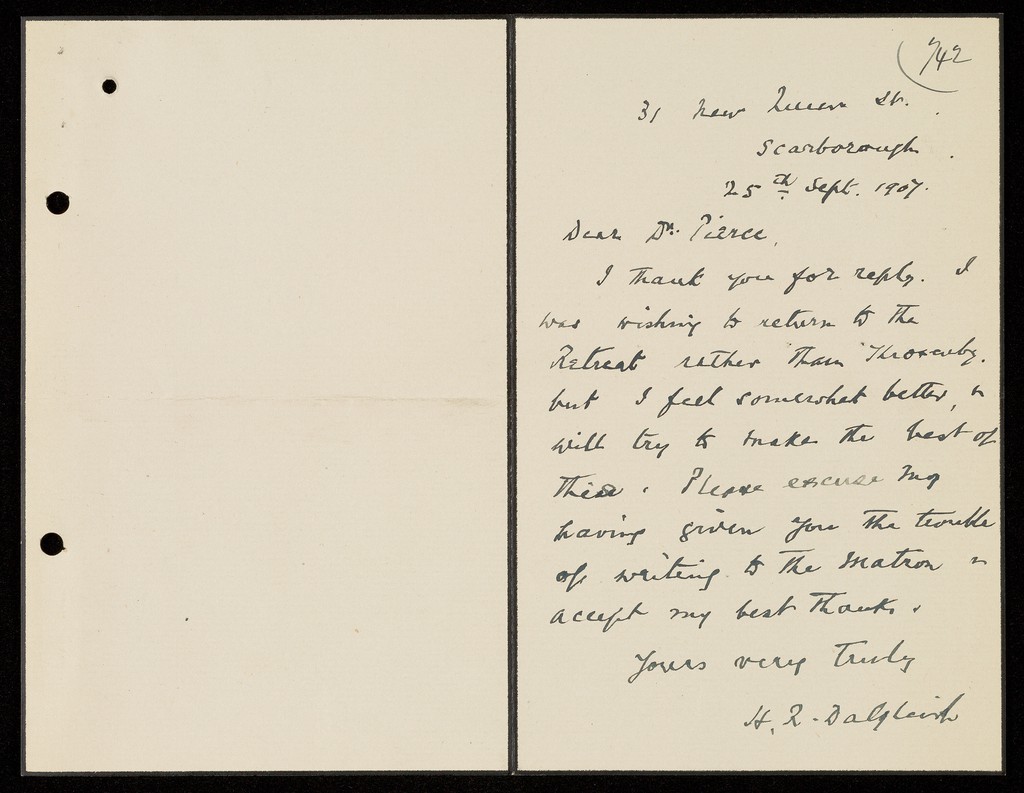 742
31 New Queen St.
Scarborough.
25th Sept. 1907.
Dear Dr. Pierce,
I thank you for reply. I
was wishing to return to the
Retreat rather than Throxenby.
but I feel somewhat better, &
will try to make the best of
this. Please excuse my
having given you the trouble
of writing to the Matron &
accept my best thanks.
Yours very truly
H. R. Dalgleish